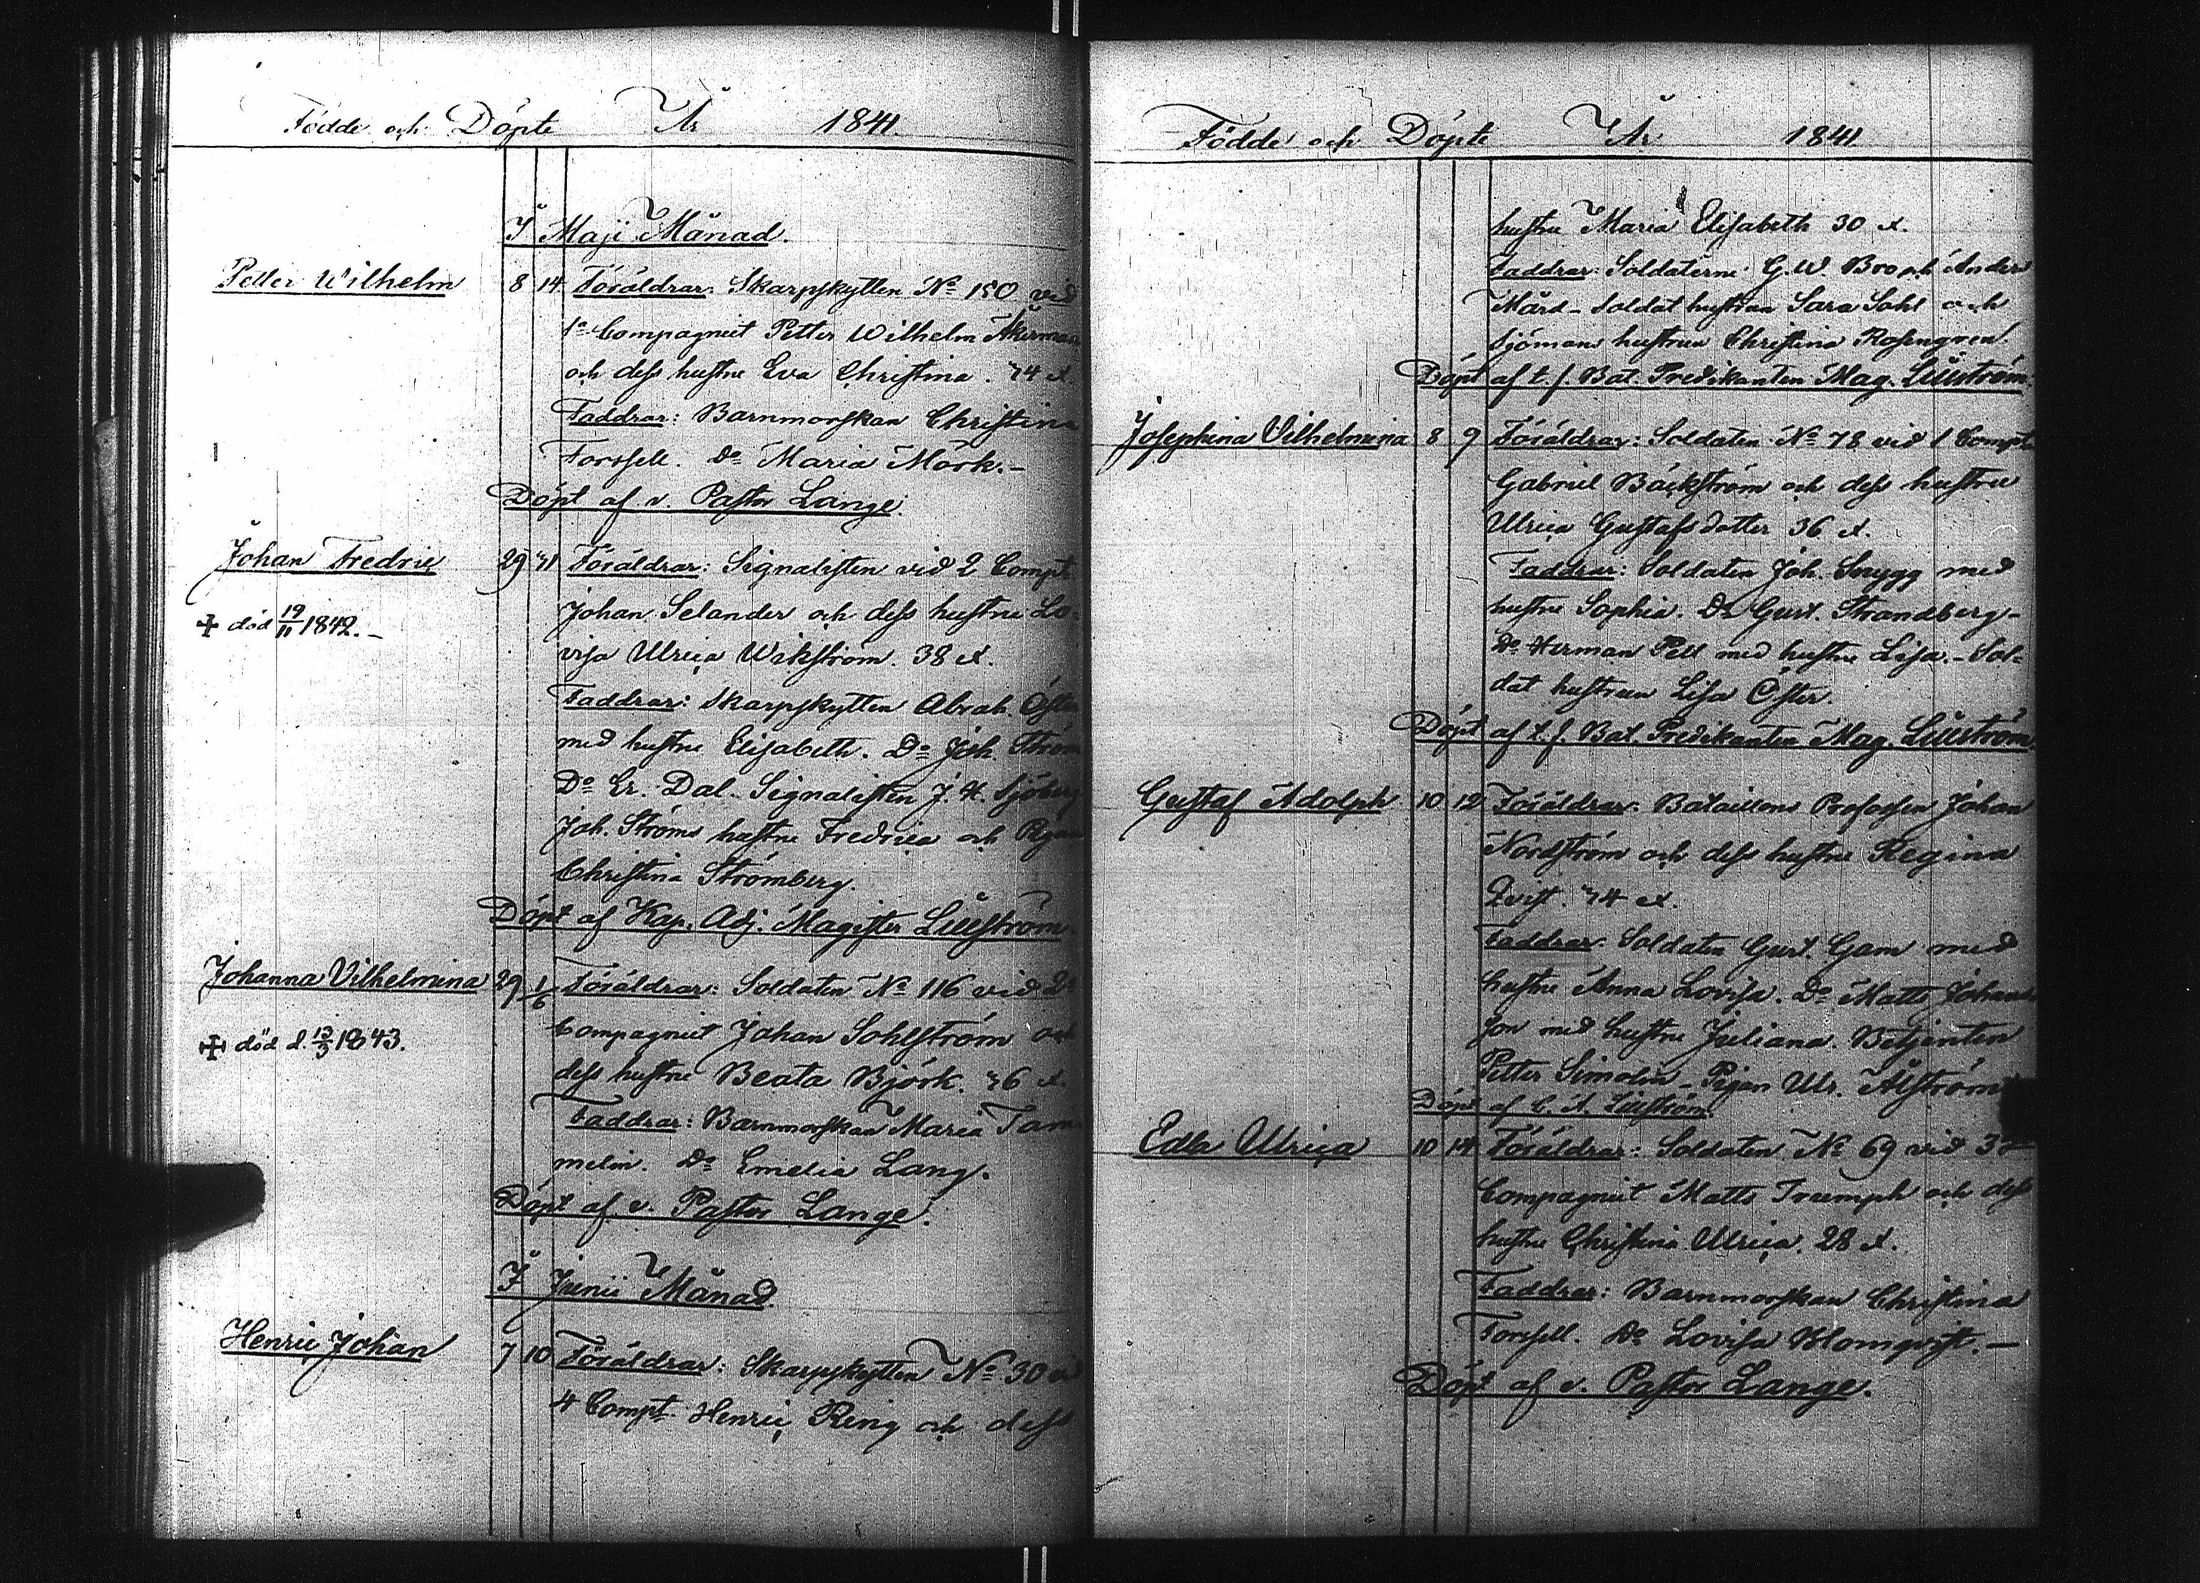 Födde och Döpte År 1841.
I Maji Månad.
Petter Wilhelm 8 14 Föräldrar: Skarpskytten No 150 vid
1a Compagniet Petter Wilhelm Åkerman
och dess hustru Eva Christina. 34 å.
Faddrar: Barnmorskan Christina
Forssell. Do Maria Mörk.-
Döpt af v. Pastor Lange.
Johan Fredric 29 31 Föräldrar: Signalisten vid 2 Compt
+ död 19/11 1842.- Johan Selander och dess hustru Lo-
visa Ulrica Wikström. 38 å.
Faddrar: Skarpskytten Abrah. Öster
med hustru Elisabeth. Do Joh. Ström
Do Er. Dal. Signalisten J. H. Sjöberg
Joh. Ströms hustru Fredrica och
Christina Strömberg.
Döpt af Kap. Adj. Magister Lillström
Johanna Vilhelmina 29 1/6 Föräldrar: Soldaten No 116 vid 2a
+ död d. 12/3 1843. Compagniet Johan Sohlström och
dess hustru Beata Björk. 36 å.
Faddrar: Barnmorskan Maria Tam-
melin. Do Emelia Lang.
Döpt af v. Pastor Lange.
I Junii Månad.
Henric Johan 7 10 Föräldrar: Skarpskytten No 30 vi
4 Compt Henric Ring och dess
Födde och Döpte År 1841
hustru Maria Elisabeth 30 å.
Faddrar: Soldaterne G. W. Bro och Anders
Mård - Soldat hustrun Sara Sohl och
Sjömans hustrun Christina Rosengren.
Döpt af t. f. Bat. Predikanten Mag. Lillström.
Josephina Vilhelmina 8 9 Föräldrar: Soldaten No 78 vid 1 Compt
Gabriel Bäckström och dess hustru
Ulrica Gustafsdotter 36 å.
Faddrar: Soldaten Joh. Snygg med
hustru Sophia. Do Gust. Strandberg-
Do Herman Pell med hustru Lisa.- Sol-
dat hustrun Lisa Öster.
Döpt af t. f. Bat. Predikanten Mag. Lillström.
Gustaf Adolph 10 12 Föräldrar: Bataillons Profossen Johan
Nordström och dess hustru Regina
Qvist. 34 å.
Faddrar: Soldaten Gust. Gam med
hustru Anna Lovisa. Do Matts Johans-
son med hustru Juliana. Betjenten
Petter Simolin - Pigan Ulr. Alström
Döpt af C. A. Lillström
Edla Ulrica 10 14 Föräldrar: Soldaten No 69 vid 3
Compagniet Matts Trumph och dess
hustru Christina Ulrica. 28 å.
Faddrar: Barnmorskan Christina
Forssell. Do Lovisa Blomqvist.-
Döpt af v. Pastor Lange.